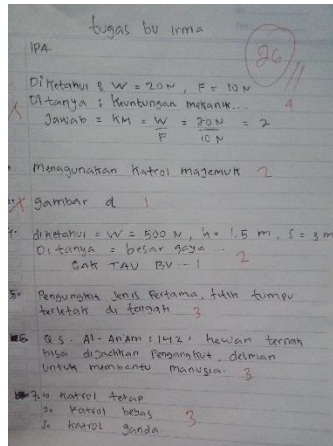 tugas bu irma
IPA
26
Diketahui : W = 20 N, F = 10 N
Ditanya : Keuntungan mekanik...
4
Jawab = KM = W/F = 20N/10N = 2
Menggunakan Katrol majemuk 2
gambar d 1
4. diketahui = W = 500 N, h = 1.5 m, s = 3 m
Ditanya = besar gaya ...
GAK TAU BU -- 2
5. Pengungkit jenis Pertama, titik tumpu
terletak di tengah 3
6 Q S. Al-An'Am : 142: hewan ternak
bisa dijadikan Pengangkut, delman
untuk membantu manusia. 3
7. 1. Katrol tetap
2. Katrol bebas 3
3. Katrol ganda